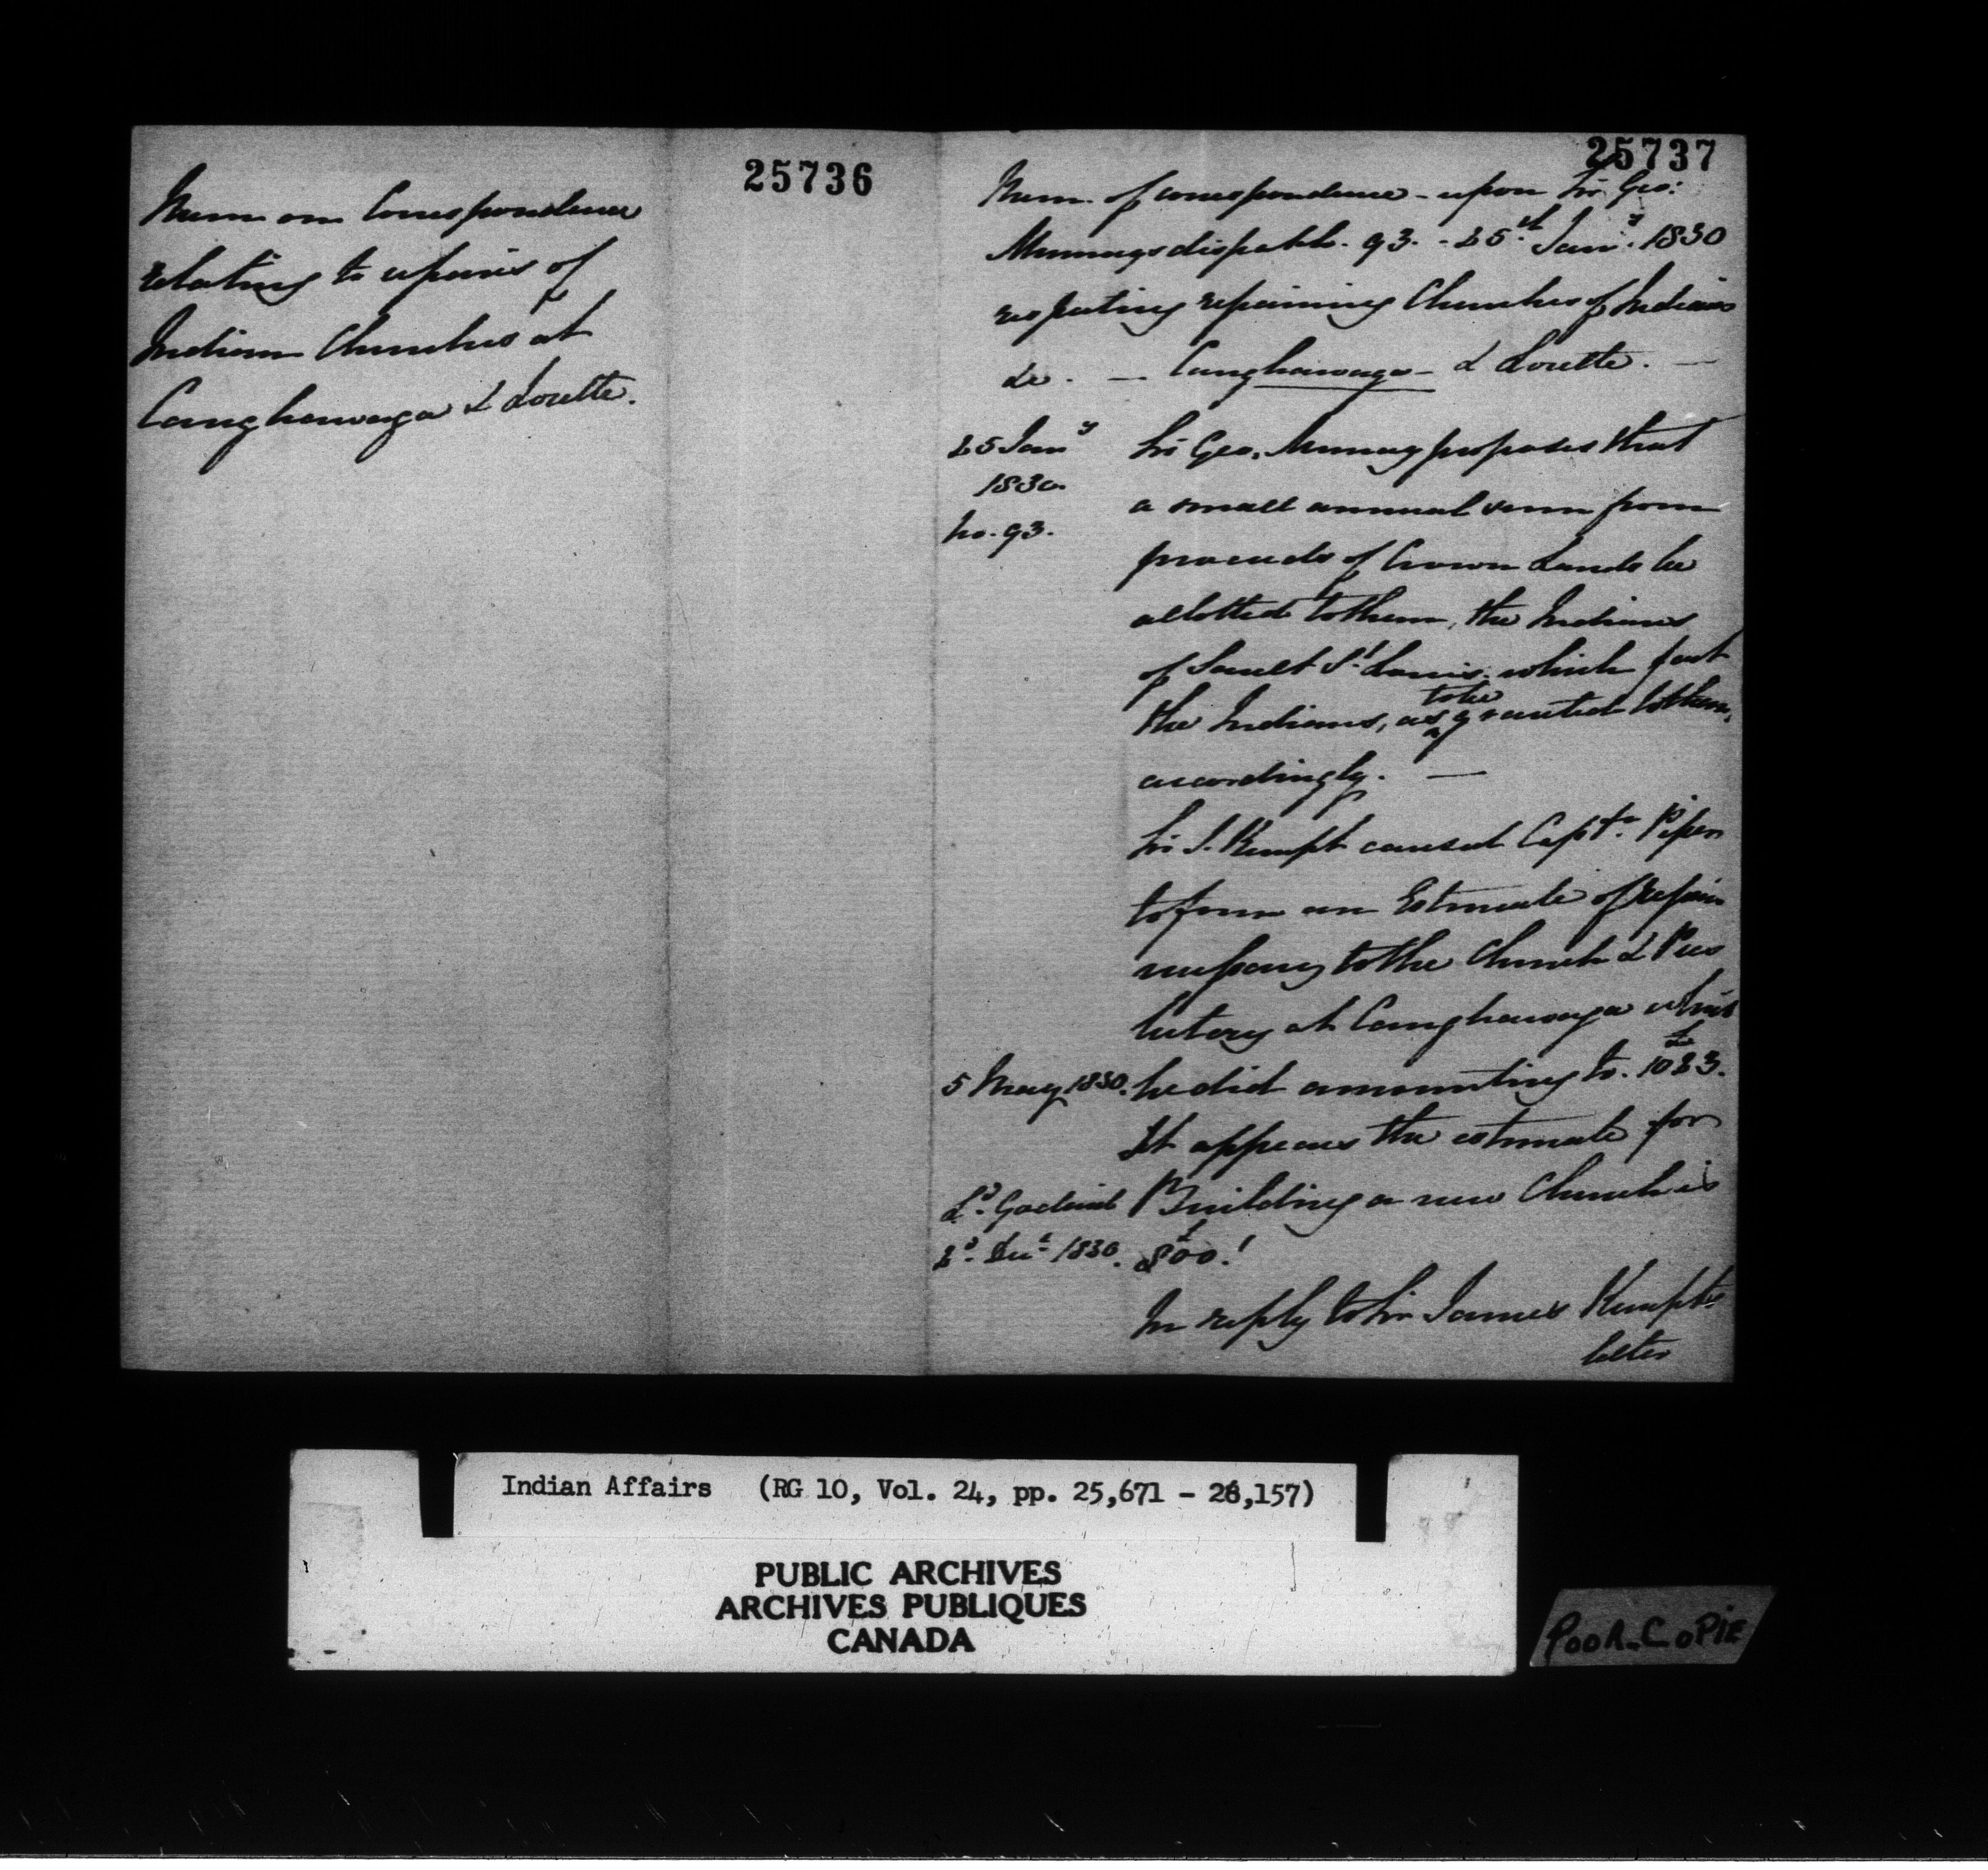 25736
Mem on Correspondence
relating to repairs of
Indian Churches at
Caughnawaga & Lorette.
25737
Mem. of correspondence - upon Sir Geo:
Murrays dispatch. 93. - 25th Jany. 1830
respecting repairing Churches of Indians
&c. — Caughnawaga - & Lorette. —
25 Jany
1830.
No. 93.
Sir Geo. Murray proposes that
a small annual sum from
proceeds of Crown Lands be
allotted to them, the Indians
of Sault St. Louis. which
the Indians, as to be granted to them,
accordingly. —
Sir J. Kempt caused Captn. Piper
to form an Estimate of repairs
necessary to the Church & Pres
bitery at Caughnawaga which
5 May 1830.
he did amounting to. £1023.
It appears the estimate for
Ld. Goderich
2d. Decr 1830.
Building a new Church is
£800!
In reply to Sir James Kempt's
letter
Indian Affairs (RG 10, Vol. 24, pp. 25,671 - 26,157)
PUBLIC ARCHIVES
ARCHIVES PUBLIQUES
CANADA
POOR COPIE